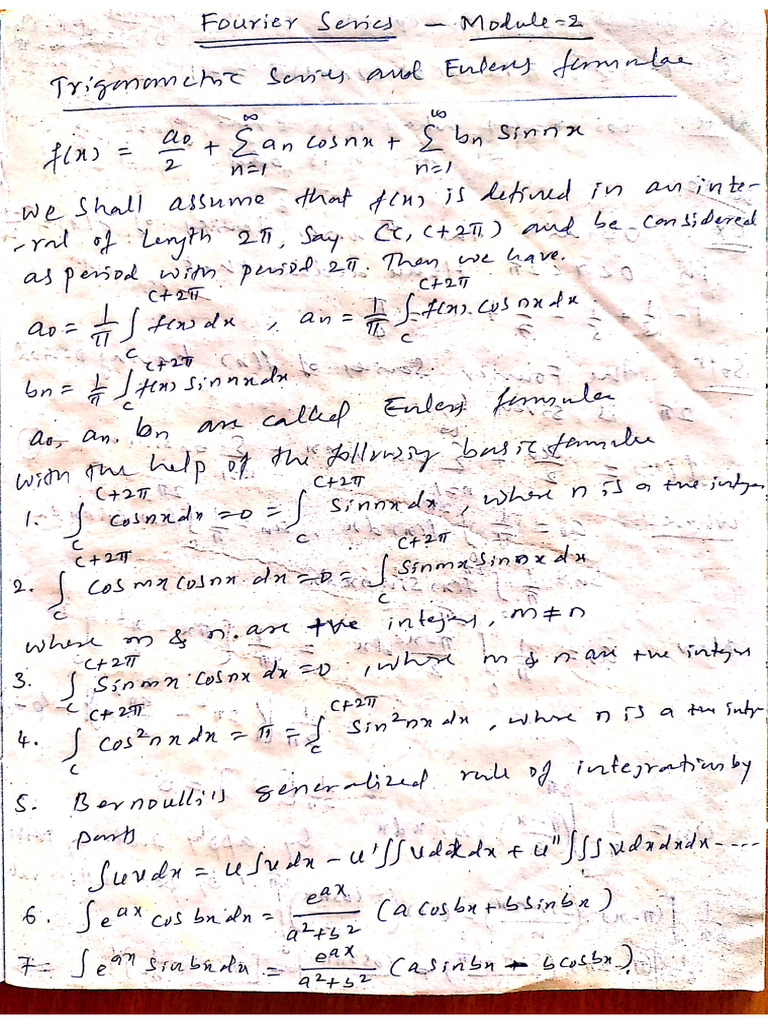 Fourier Series – Module-2
Trigonometric Series and Eulers formulae
f(x) = a0/2 + ∑_{n=1}^{∞} an cosnx + ∑_{n=1}^{∞} bn sinnx
we shall assume that f(x) is defined in an inte-
-rval of length 2π, say (c, c+2π) and be considered
as period with period 2π. Then we have.
a0 = 1/π ∫_c^{c+2π} f(x) dx , an = 1/π ∫_c^{c+2π} f(x). cos nx dx
bn = 1/π ∫_c^{c+2π} f(x) sin nx dx.
a0, an. bn are called Eulers formulae
with the help of the following basic formulae
1. ∫_c^{c+2π} cosnx dx = 0 = ∫_c^{c+2π} sin nx dx , where n is a +ve integer
2. ∫_c^{c+2π} cos mx cosnx dx = 0 = ∫_c^{c+2π} sinmx sin nx dx
where m & n. are +ve integers, m ≠ n
3. ∫_c^{c+2π} sin mx cosnx dx = 0 , where m & n are +ve integers
4. ∫_c^{c+2π} cos²nx dx = π = ∫_c^{c+2π} sin²nx dx , where n is a +ve intgr
5. Bernoulli's generalized rule of integration by
parts
∫uvdx = u∫vdx – u'∫∫vdxdx + u''∫∫∫vdxdxdx-....
6. ∫e^{ax} cos bx dx = e^{ax}/(a²+b²) (a cosbx + b sinbx)
7- ∫e^{ax} sinbx dx = e^{ax}/(a²+b²) (a sinbx – b cosbx).